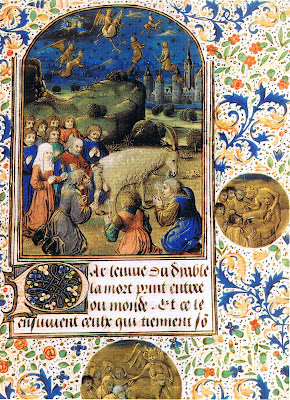 Par lenuie du dyable
la mort print entree
ou monde. Et ce le
ensuiuent ceulx qui tienent sõ